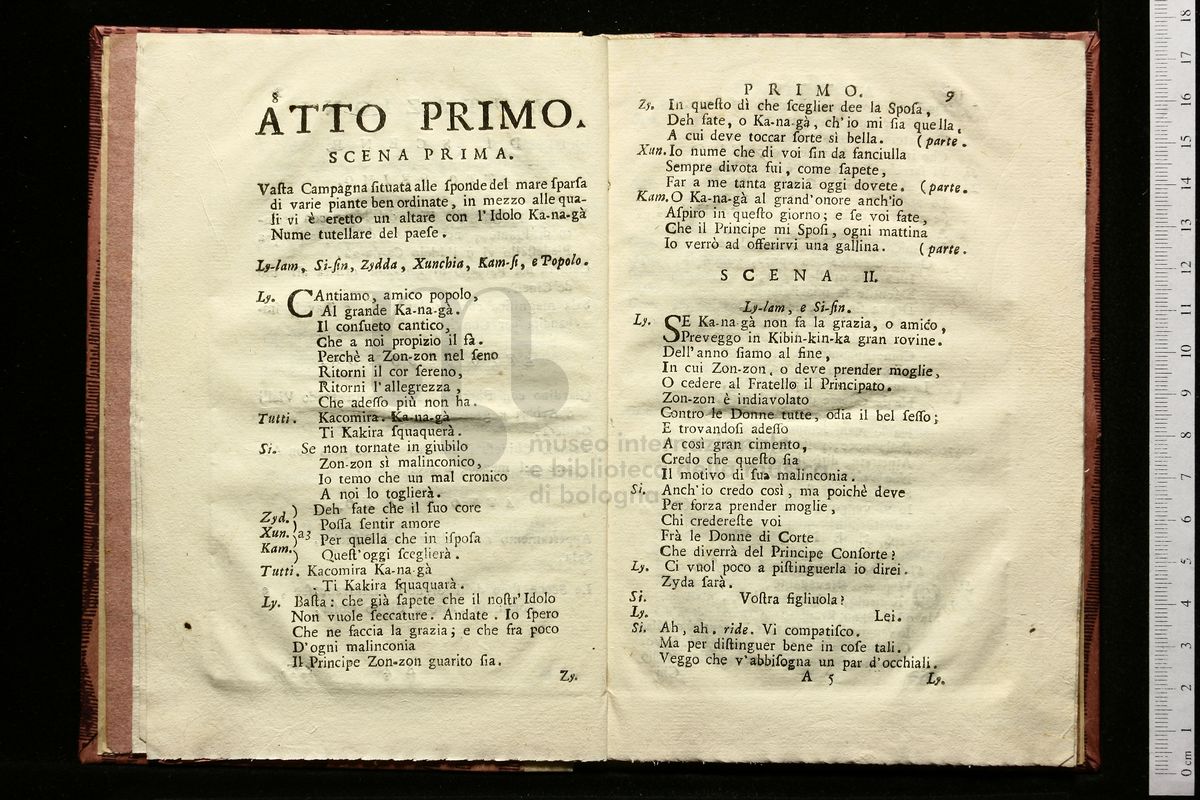 8
ATTO PRIMO.
SCENA PRIMA.
Vaſta Campagna ſituata alle ſponde del mare ſparſa
di varie piante ben ordinate, in mezzo alle qua-
li vi è eretto un altare con l'Idolo Ka-na-gà
Nume tutellare del paeſe.
Ly-lam, Si-ſin, Zydda, Xunchia, Kam-ſi, e Popolo.
Ly. CAntiamo, amico popolo,
Al grande Ka-na-gà.
Il conſueto cantico,
Che a noi propizio il fà.
Perchè a Zon-zon nel ſeno
Ritorni il cor ſereno,
Ritorni l'allegrezza,
Che adeſſo più non ha.
Tutti. Kacomira. Ka-na-gà
Ti Kakira ſquaquerà.
Si. Se non tornate in giubilo
Zon-zon sì malinconico,
Io temo che un mal cronico
A noi lo toglierà.
Zyd.) Deh fate che il ſuo core
Xun.)a3 Poſſa ſentir amore
Kam.) Per quella che in iſpoſa
Queſt'oggi ſceglierà.
Tutti. Kacomira Ka-na-gà
Ti Kakira ſquaquarà.
Ly. Baſta: che già ſapete che il noſtr'Idolo
Non vuole ſeccature. Andate. Io ſpero
Che ne faccia la grazia; e che fra poco
D'ogni malinconia
Il Principe Zon-zon guarito ſia.
Zy.
PRIMO. 9
Zy. In queſto dì che ſceglier dee la Spoſa,
Deh fate, o Ka-na-gà, ch'io mi ſia quella,
A cui deve toccar ſorte sì bella. (parte.
Xun. Io nume che di voi fin da fanciulla
Sempre divota fui, come ſapete,
Far a me tanta grazia oggi dovete. (parte.
Kam. O Ka-na-gà al grand'onore anch'io
Aſpiro in queſto giorno; e ſe voi fate,
Che il Principe mi Spoſi, ogni mattina
Io verrò ad offerirvi una gallina. (parte.
SCENA II.
Ly-lam, e Si-ſin.
Ly. SE Ka-na-gà non fa la grazia, o amico,
Preveggo in Kibin-kin-ka gran rovine.
Dell'anno ſiamo al fine,
In cui Zon-zon, o deve prender moglie,
O cedere al Fratello il Principato.
Zon-zon è indiavolato
Contro le Donne tutte, odia il bel ſeſſo;
E trovandoſi adeſſo
A così gran cimento,
Credo che queſto ſia
Il motivo di ſua malinconia.
Si. Anch'io credo così, ma poichè deve
Per forza prender moglie,
Chi credereſte voi
Frà le Donne di Corte
Che diverrà del Principe Conſorte?
Ly. Ci vuol poco a piſtinguerla io direi.
Zyda ſarà.
Si. Voſtra figliuola?
Ly. Lei.
Si. Ah, ah, ride. Vi compatiſco.
Ma per diſtinguer bene in coſe tali.
Veggo che v'abbiſogna un par d'occhiali.
A 5 Ly.
museo
e biblioteca
di bologna
0 cm 1 2 3 4 5 6 7 8 9 10 11 12 13 14 15 16 17 18